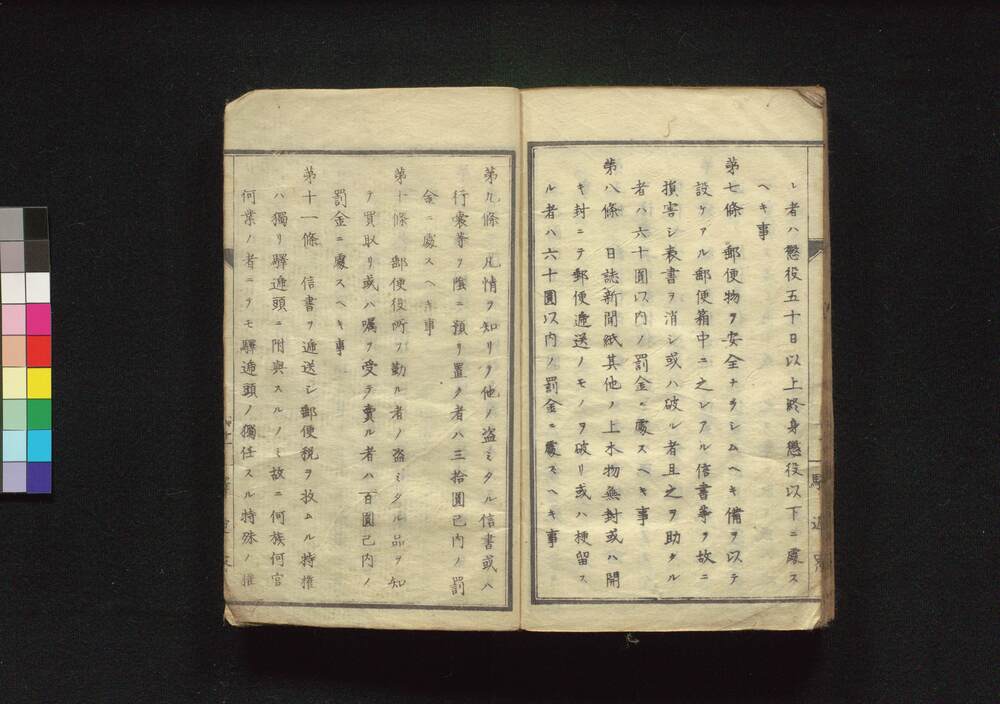 レ者ハ懲役五十日以上終身懲役以下ニ處ス
ヘキ事
第七條　郵便物ヲ安全ナラシムヘキ備ヲ以テ
設ケアル郵便箱中ニ之レアル信書等ヲ故ニ
損害シ表書ヲ消シ或ハ破レ者且之ヲ助タル
者ハ六十圓以内ノ罰金ニ處スヘキ事
第八條　日誌新聞紙其他ノ上木物無封或ハ開
キ封ニテ郵便遞送ノモノヲ破リ或ハ梗留ス
ル者ハ六十圓以内ノ罰金ニ處スヘキ事
驛遞寮
第九條　凡情ヲ知リタ他ノ盗ミタル信書或ハ
行嚢等ヲ陰ニ預リ置ク者ハ三拾圓己内ノ罰
金ニ處スヘキ事
第十條　郵便役所ヲ勤ル者ノ盗ミタル品ヲ知
ヲ買取リ或ハ嘱ヲ受テ賣ル者ハ百圓己内ノ
罰金ニ處スヘキ事
第十一條　信書ヲ遞送シ郵便税ヲ收ムル特權
ハ獨リ驛遞頭ニ附與スルノミ故ニ何族何官
何業ノ者ニテモ驛遞頭ノ獨任スル特殊ノ權